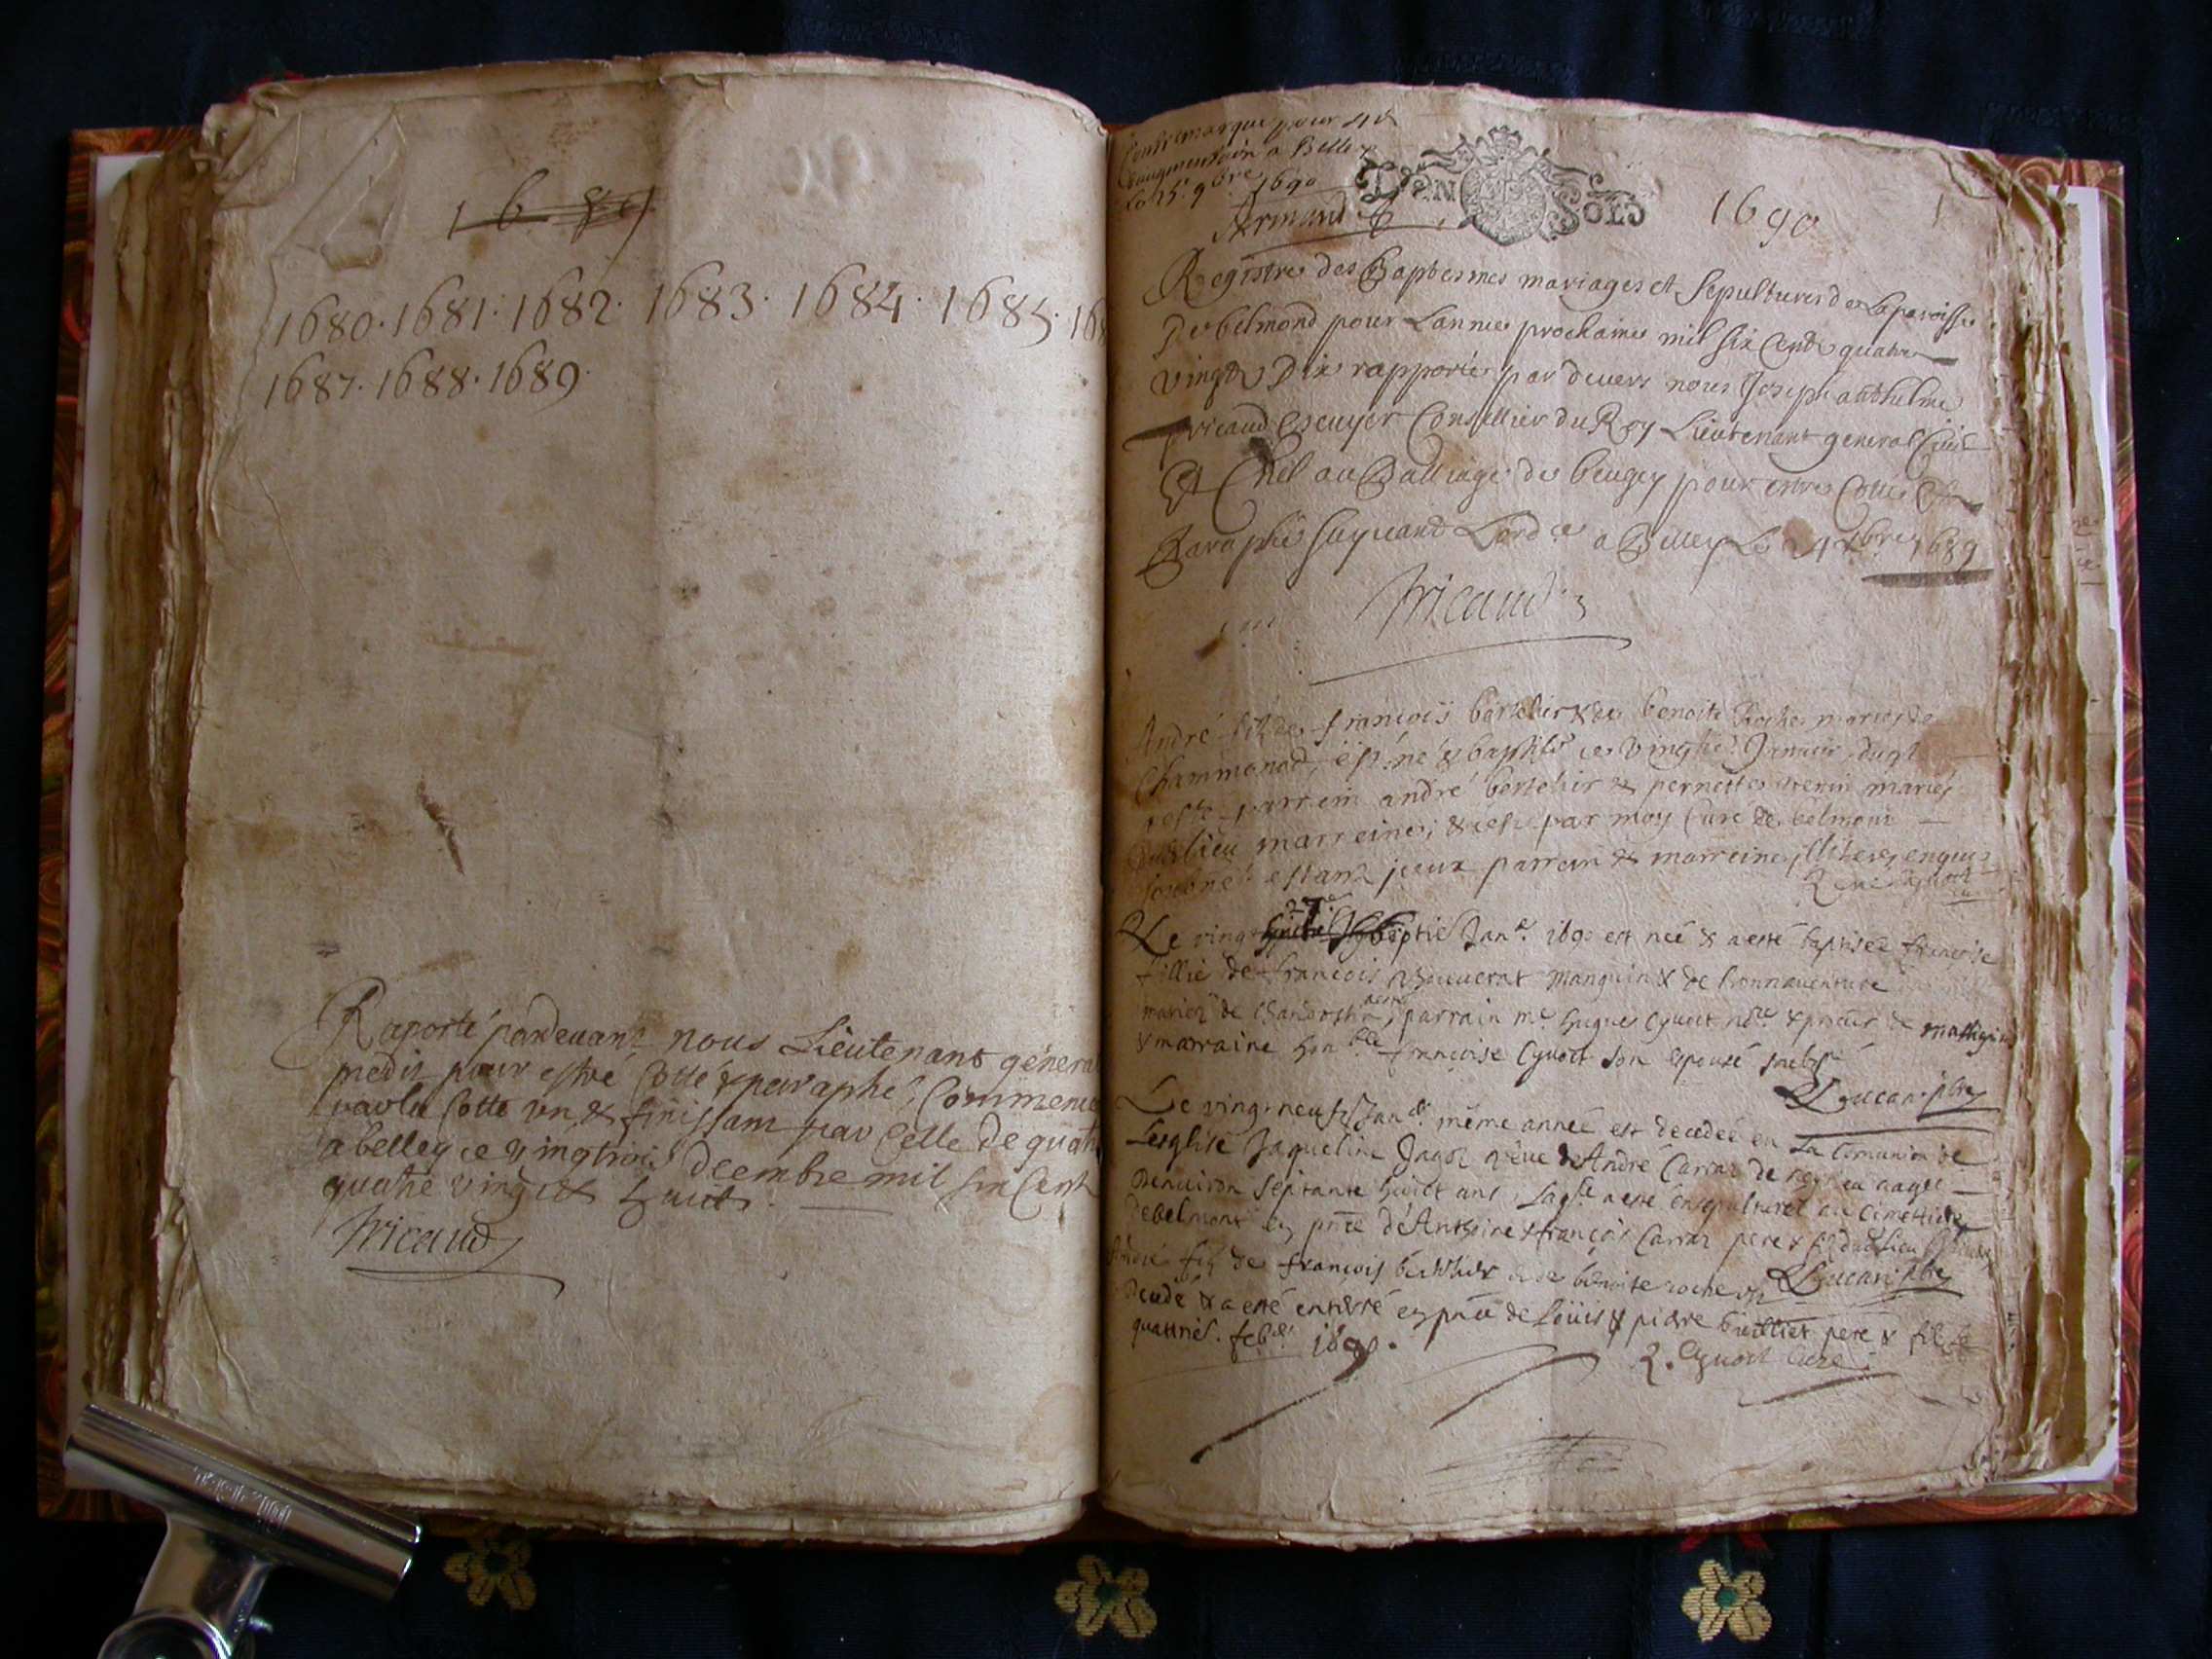 1689
1680. 1681. 1682. 1683. 1684. 1685. 168
1687. 1688. 1689.
Raporté pardevant nous Lieutenant genera
predit pour estre Cotté & paraphé, Commence
par la Cotte un, & finissant par Celle de quat
a belley ce vingtrois decembre mil six Cent
quatre vingts huict.
Tricaud
Contremarque pour
L'augmentation a Belley
Le 15e 9bre 1690
Armand
DEN SOLS
1690
1
Registre des Baptesmes mariages et Sepultures de La paroisse
De belmond pour Lannee prochaine mil six Cents quatre
Vingts Dix rapporté par devers nous Joseph anthelme
Tricaud Escuyer Conseillier du Roy Lieutenant general Civil
Et Cnel au Balliage de beugey pour estre Cotté Et
Paraphé suyvant Lord.ce a Belley Le 24 Xbre 1689
Tricaud
André fils de françois bertelier & de benoite Roche mariés de
Chammonod, est né & baptisé ce vingtie Janvier dudt
parrein andré bertelier & pernette mariés
dudt lieu marreine; & par moy Curé de belmont
estant iceux parrein & marreine illiteres enquis
Le vingt septie Janr 1690 est neé & a esté baptisée françoise
fillie de françois Manguin & de bonnaventure
mariez de parrain me hugues Cyvoct nore & procur de
& marraine honble françoise Cyvoct son espouse
Lucan ptre
Le ving-neuf Janer même année est decedeé en La Comunion de
Lesglise Jaqueline Jagoz veuve de André Carraz de aageé
Denviron septante huict ans, Lagelle a esté ensepulturée au Cimettiere
debelmont en pnce d'Anthoine & françois Carraz pere & fils dud lieu
Lucan ptre
André fils de françois bertelier & de benoite roche est
Decedé & a esté enterré en pnce de Loüis & pierre pere & fils le
quattrie. feber 1690.
R. Cyvoct Curé